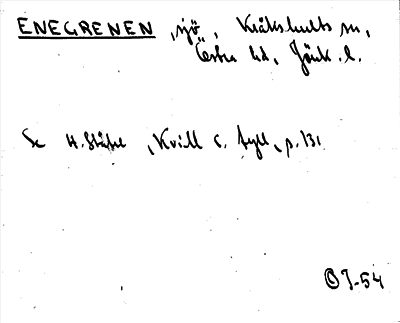 ENEGRENEN, sjö, Kråkshults sn,
Östra hd, Jönk. l.
Se H. Ståhl, Kvill o. Fyll, p. 131
OJ-54